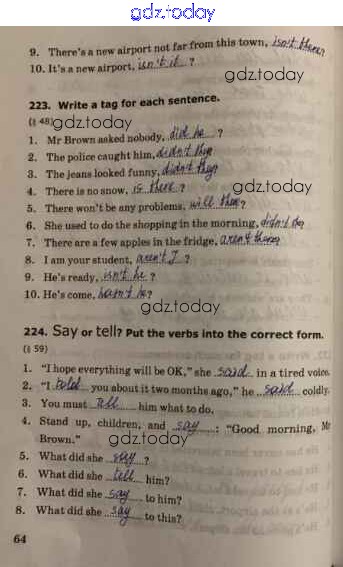 gdz.today
9. There's a new airport not far from this town, isn't there?
10. It's a new airport, isn't it ?
gdz.today
223. Write a tag for each sentence.
(§ 48) gdz.today
1. Mr Brown asked nobody, did he ?
2. The police caught him, didn't they?
3. The jeans looked funny, didn't they?
4. There is no snow, is there ? gdz.today
5. There won't be any problems, will there?
6. She used to do the shopping in the morning, didn't she?
7. There are a few apples in the fridge, aren't there?
8. I am your student, aren't I ?
9. He's ready, isn't he ?
10. He's come, hasn't he?
gdz.today
224. Say or tell? Put the verbs into the correct form.
(§ 59)
1. "I hope everything will be OK," she said in a tired voice.
2. "I told you about it two months ago," he said coldly.
3. You must tell him what to do.
4. Stand up, children, and say : "Good morning, Mr
Brown."
gdz.today
5. What did she say ?
6. What did she tell him?
7. What did she say to him?
8. What did she say to this?
64